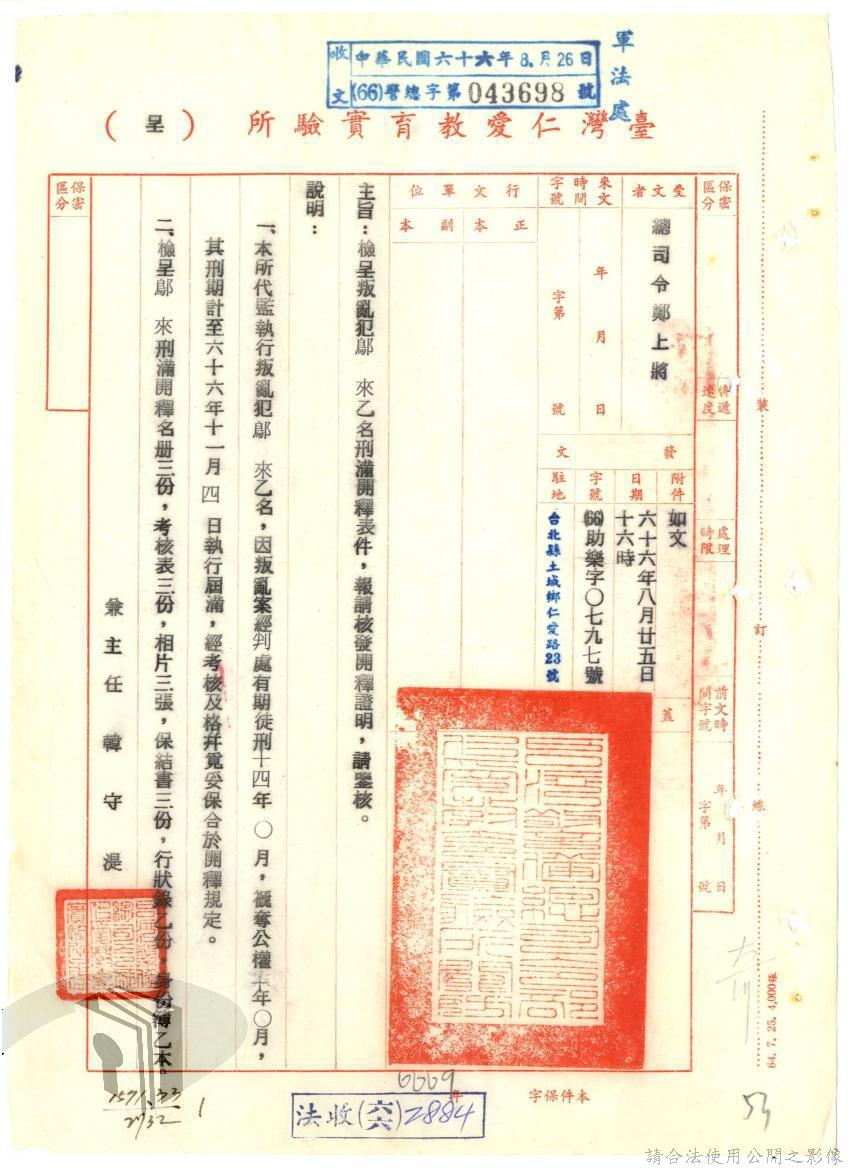 軍法處
收文
中華民國六十六年8.月26日
(66)警總字第043698號
臺灣仁愛教育實驗所(呈)
保密區分
傳遞速度
處理時限
前文時間字號
年月日
字第號
受文者
總司令鄭上將
來文時間字號
年月日
字第號
發文
附件
如文
日期
六十六年八月廿五日
十六時
字號
(66)助樂字〇七九七號
駐地
台北縣土城鄉仁愛路23號
蓋
行文單位
正本
副本
主旨：檢呈叛亂犯鄔 來乙名刑滿開釋表件，報請核發開釋證明，請鑒核。
說明：
一、本所代監執行叛亂犯鄔 來乙名，因叛亂案經判處有期徒刑十四年〇月，褫奪公權十年〇月，
其刑期計至六十六年十一月四日執行屆滿，經考核及格幷覓妥保合於開釋規定。
二、檢呈鄔 來刑滿開釋名册三份，考核表三份，相片三張，保結書三份，行狀錄乙份，身份簿乙本。
兼主任韓守湜
保密區分
裝
訂
線
64.7.25.4,000張
本件保字
年
6669
法收(六六)2884
1571.33
2732
1
53
請合法使用公開之影像